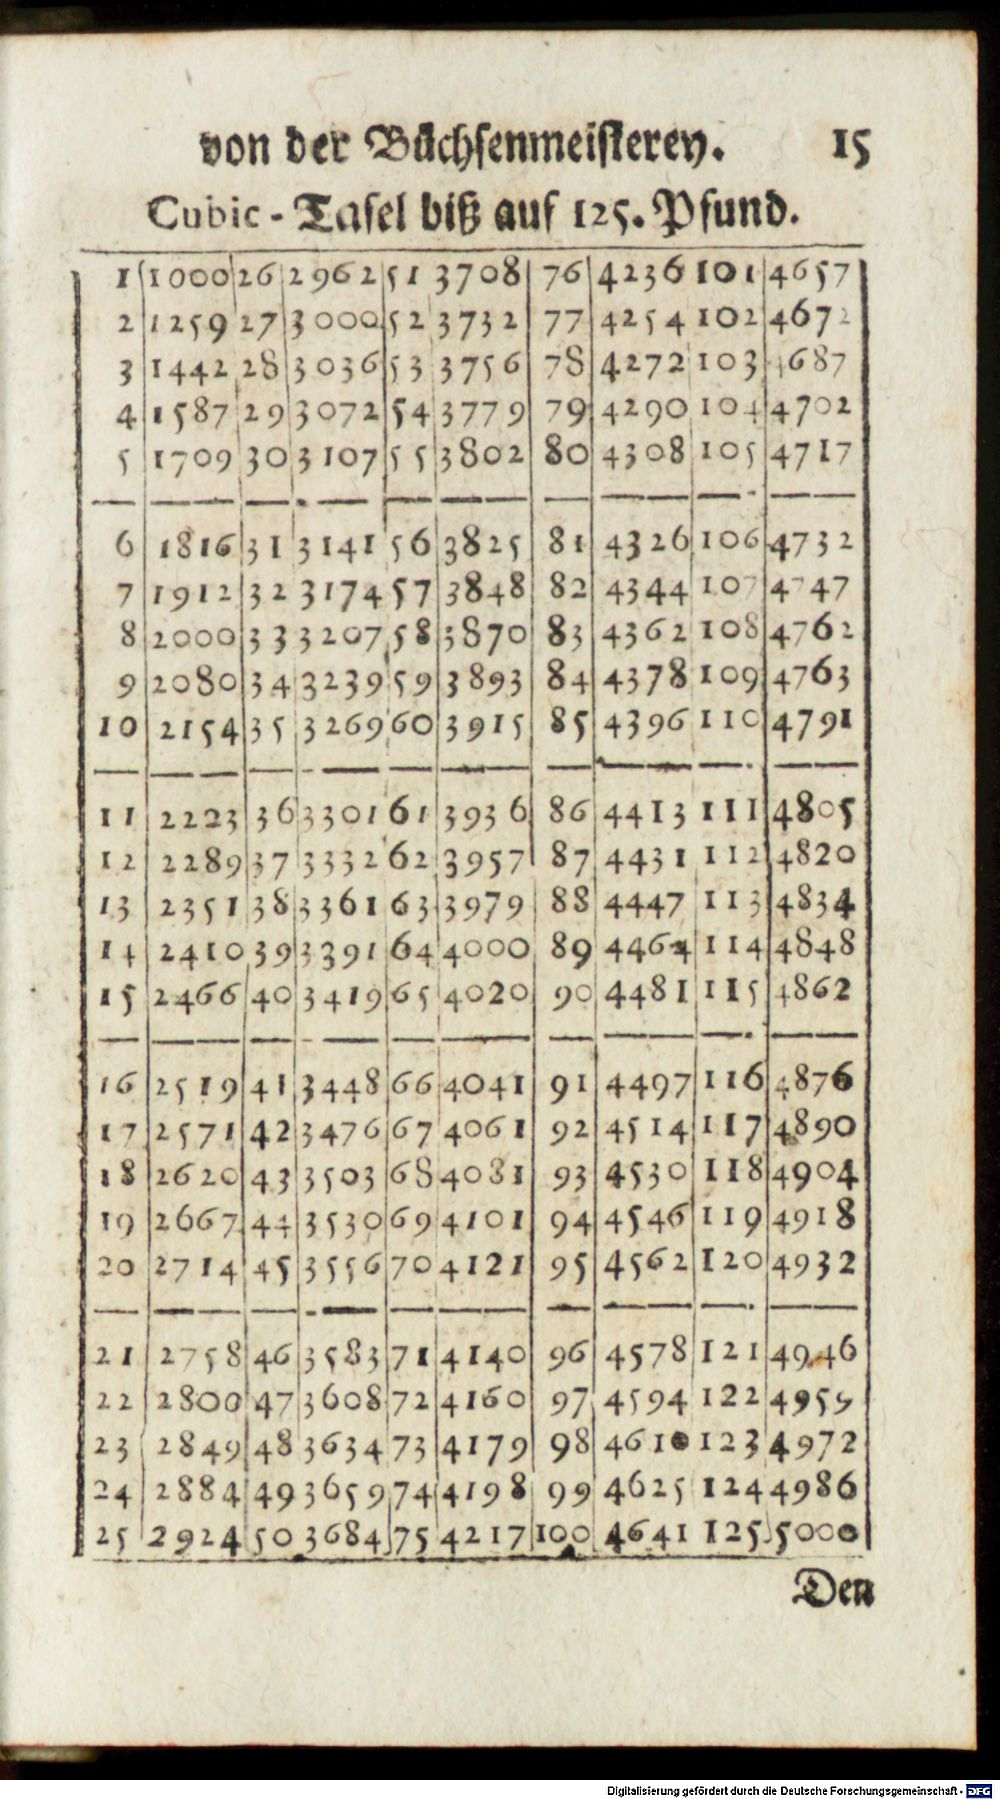 von der Büchsenmeisterey. 15
Cubic-Tafel biß auf 125. Pfund.
1 1000 26 2962 51 3708 76 4236 101 4657
2 1259 27 3000 52 3732 77 4254 102 4672
3 1442 28 3036 53 3756 78 4272 103 4687
4 1587 29 3072 54 3779 79 4290 104 4702
5 1709 30 3107 55 3802 80 4308 105 4717
6 1816 31 3141 56 3825 81 4326 106 4732
7 1912 32 3174 57 3848 82 4344 107 4747
8 2000 33 3207 58 3870 83 4362 108 4762
9 2080 34 3239 59 3893 84 4378 109 4763
10 2154 35 3269 60 3915 85 4396 110 4791
11 2223 36 3301 61 3936 86 4413 111 4805
12 2289 37 3332 62 3957 87 4431 112 4820
13 2351 38 3361 63 3979 88 4447 113 4834
14 2410 39 3391 64 4000 89 4464 114 4848
15 2466 40 3419 65 4020 90 4481 115 4862
16 2519 41 3448 66 4041 91 4497 116 4876
17 2571 42 3476 67 4061 92 4514 117 4890
18 2620 43 3503 68 4081 93 4530 118 4904
19 2667 44 3530 69 4101 94 4546 119 4918
20 2714 45 3556 70 4121 95 4562 120 4932
21 2758 46 3583 71 4140 96 4578 121 4946
22 2800 47 3608 72 4160 97 4594 122 4959
23 2849 48 3634 73 4179 98 4610 123 4972
24 2884 49 3659 74 4198 99 4625 124 4986
25 2924 50 3684 75 4217 100 4641 125 5000
Den
Digitalisierung gefördert durch die Deutsche Forschungsgemeinschaft - DFG